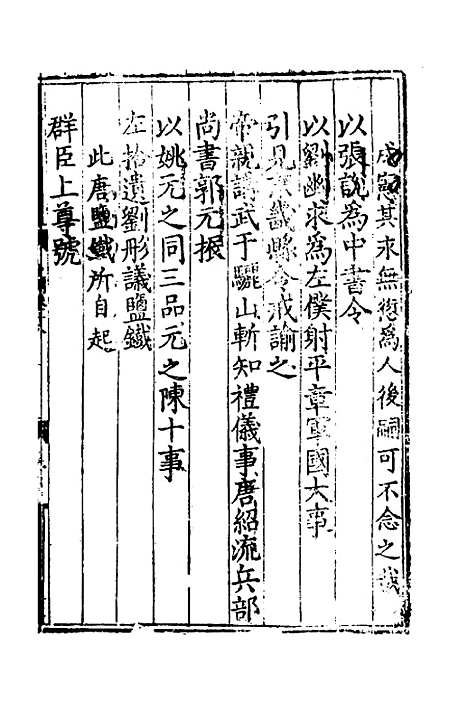 成憲其永無愆為人後嗣可不念之哉
以張說為中書令
以劉幽求為左僕射平章軍國大事
引見京畿縣令戒諭之
帝親講武于驪山斬知禮儀事唐紹流兵部
尚書郭元振
以姚元之同三品元之陳十事
左拾遺劉彤議鹽鐵
此唐鹽鐵所自起
群臣上尊號